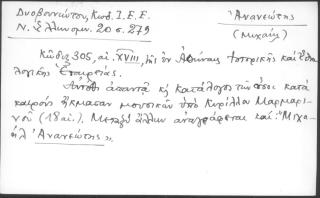 Δυοβουνιώτου, Κωδ. Ι.Ε.Ε.
Ν. Ἑλληνομν. 20 σ. 279
Ἀνανεώτης
(Μιχαήλ)
Κῶδιξ 305, αἰ. XVIII, τῆς ἐν Ἀθήναις Ἱστορικῆς καὶ Ἐθνο-
λογικῆς Ἑταιρείας.
Αὐτόθι ἀπαντᾷ κ̀ κατάλογος τῶν ὅσοι κατὰ
καιροὺς ἤκμασαν μουσικῶν ὑπὸ Κυρίλλου Μαρμαρι-
νοῦ (18 αἰ.). Μεταξὺ ἄλλων ἀναγράφεται καὶ: "Μιχα-
ὴλ Ἀνανεώτης".